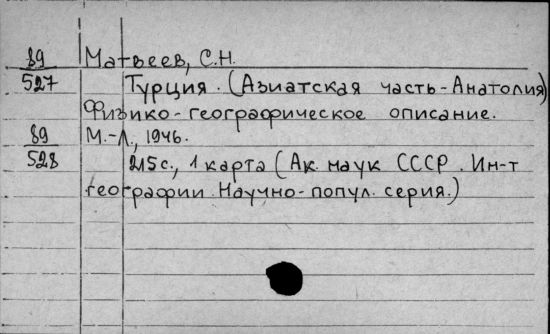 89 Матвеев, С.Н.
527 Турция. (Азиатская часть-Анатолия)
Физико-географическое описание.
89 М.-Л., 1946.
528 215с., 1 карта (Ак. наук СССР. Ин-т
географии. Научно-попул. серия.)